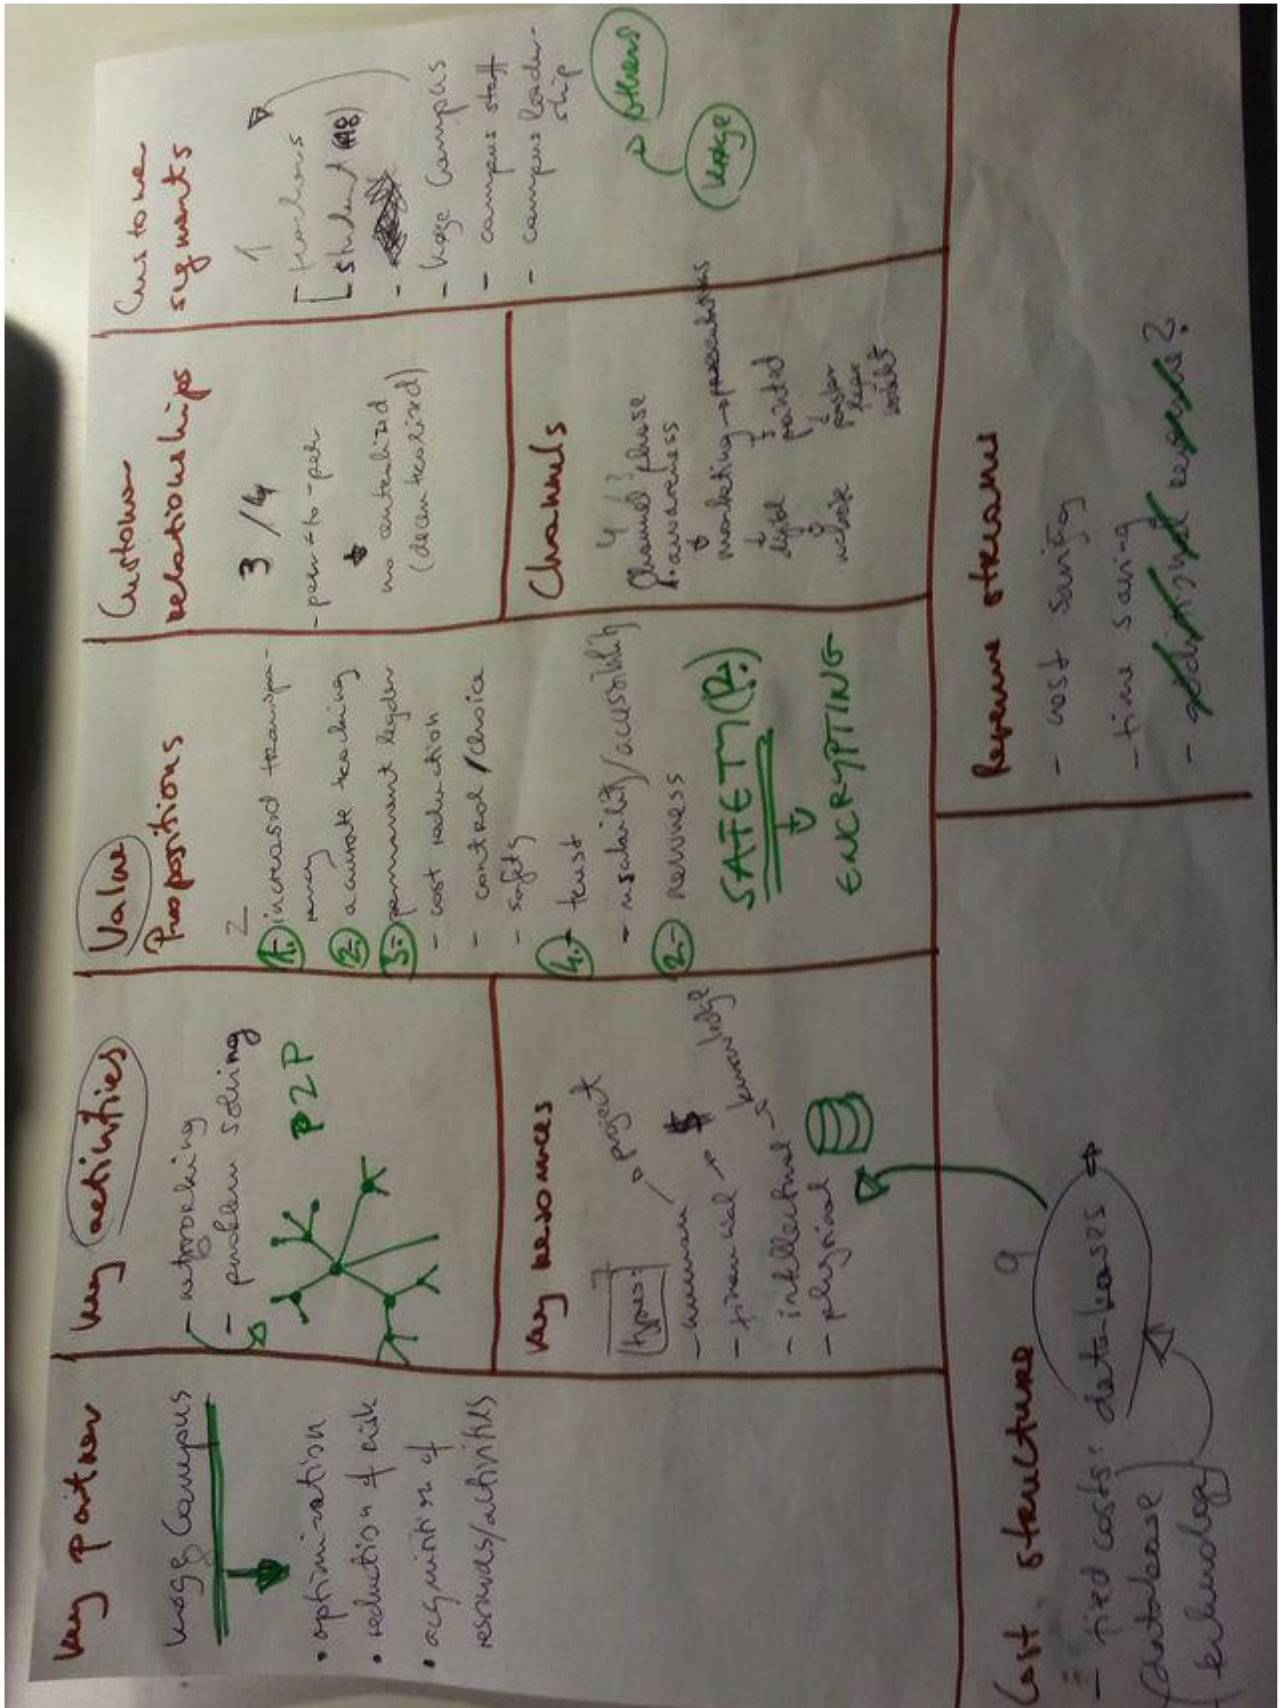 Key partner
Køge Campus
• optimization
• reduction of risk
• acquisition of
resources/activities
Key activities
- networking
- problem solving
P2P
Key resources
7
types:
- human → project
- financial → $
- intellectual → knowledge
- physical
Value
Propositions
2
1. - increased transpa-
rency
2. - accurate tracking
3. - permanent legder
- cost reduction
- control/choice
- safety
4. - trust
- usability/accessibility
2. - newness
SAFETY (P.)
ENCRYPTING
Customer
relationships
3/4
- peer-to-peer
no centralized
(decentralized)
Channels
Channel phase
1. awareness
marketing → presentations
digital printed
website poster
Customer
segments
1
- teachers
- student
- Køge Campus
- campus staff
- campus leader-
ship
Køge
others
Cost structure
9
- fied costs: databases
database
technology
Revenue streams
- cost saving
- time saving